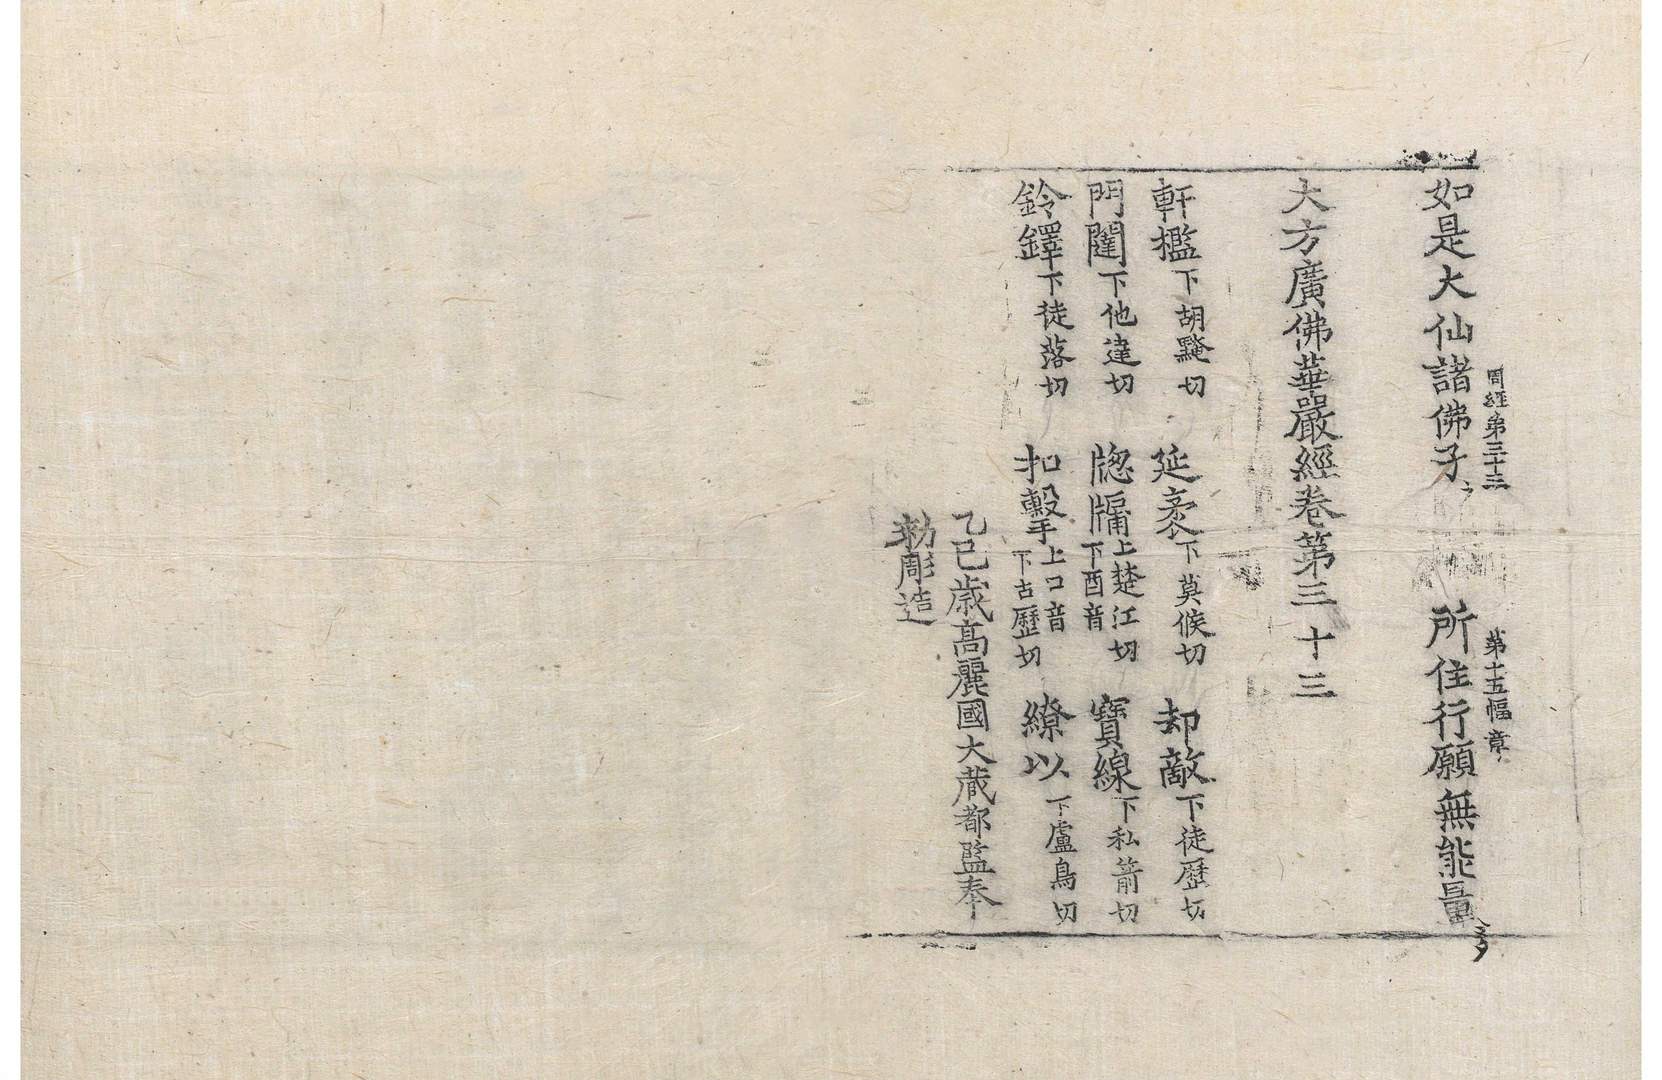 周經第三十三 第十五幅 章
如是大仙諸佛子 所住行願無能量
大方廣佛華嚴經卷第三十三
軒檻下胡黤切 延袤下莫候切 却敵下徒歷切
門闥下他達切 牎牖上楚江切下酉音 寶線下私箭切
鈴鐸下徒落切 扣擊上口音下古歷切 繚以下盧鳥切
乙巳歲高麗國大藏都監奉
勅彫造